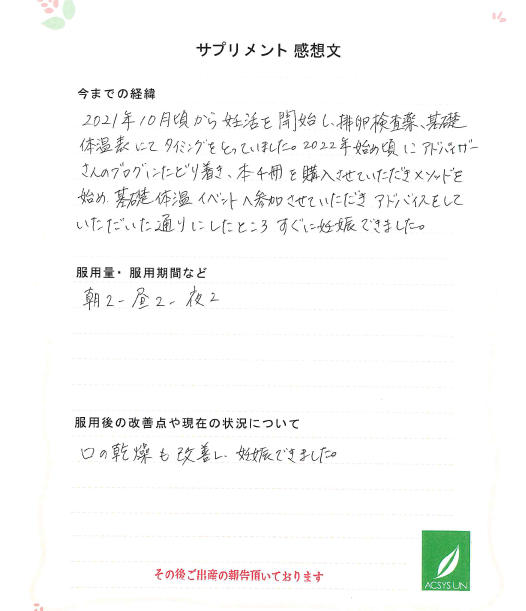 サプリメント 感想文
今までの経緯
2021年10月頃から妊活を開始し、排卵検査薬、基礎
体温表にてタイミングをとっていました。2022年始め頃にアドバイザー
さんのブログにたどり着き、本4冊を購入させていただきメソッドを
始め、基礎体温イベントへ参加させていただきアドバイスをして
いただいた通りにしたところすぐに妊娠できました。
服用量・服用期間など
朝2-昼2-夜2
服用後の改善点や現在の状況について
口の乾燥も改善し、妊娠できました。
その後ご出産の報告頂いております
ACSYS UN